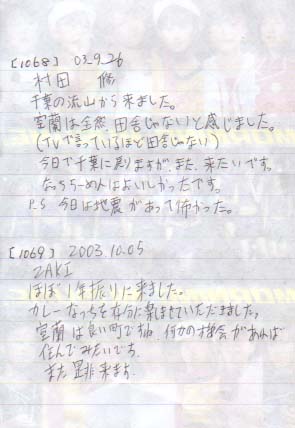 [1068] 03.9.26
村田 修
千葉の流山から来ました。
室蘭は全然、田舎じゃないと感じました。
(TVで言っているほど田舎じゃない)
今日で千葉に戻りますが、また、来たいです。
なっちらーめんはおいしかったです。
P.S 今日は地震があって怖かった。
[1069] 2003.10.05
ZAKI
ほぼ1年振りに来ました。
カレーなっちを存分に楽しませていただきました。
室蘭は良い町ですね。何かの機会があれば
住んでみたいです。
また是非来ます。